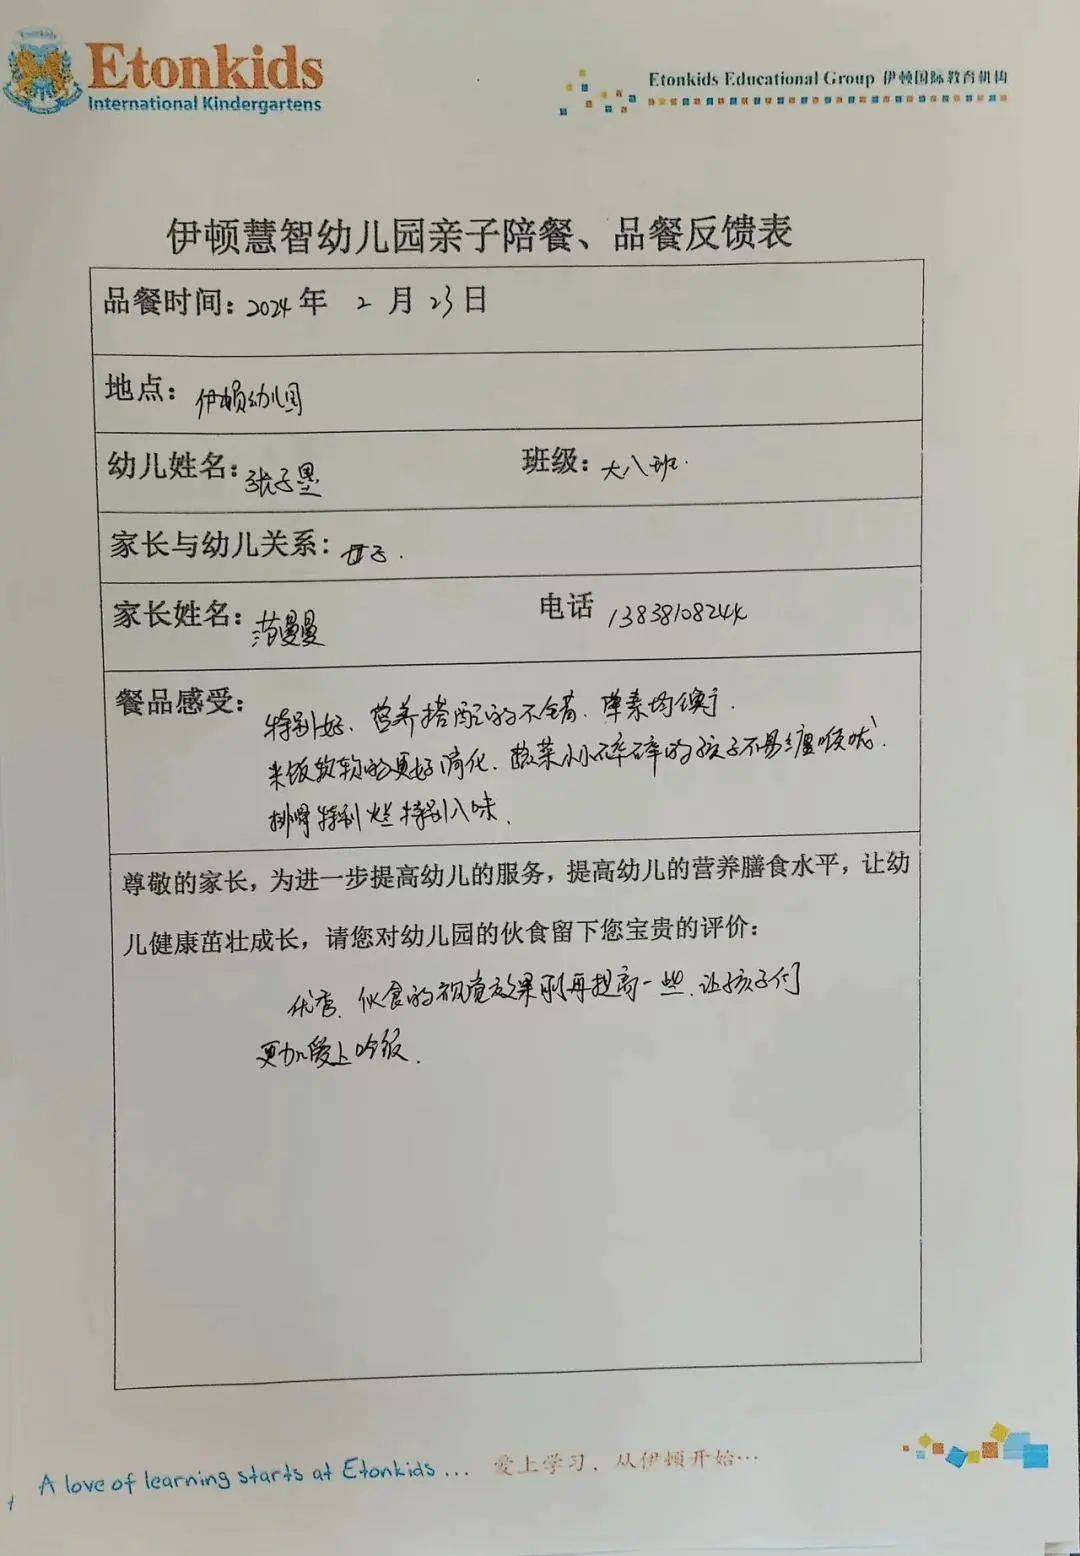 Etonkids
Etonkids
International Kindergartens
Etonkids Educational Group 伊顿国际教育机构
伊顿慧智幼儿园亲子陪餐、品餐反馈表
品餐时间：2024年 2 月 23日
地点：伊顿幼儿园
幼儿姓名：张子墨 班级：大八班.
家长与幼儿关系：母子.
家长姓名：范曼曼 电话 13838108244
餐品感受：
特别好、营养搭配的不错、荤素均衡.
米饭软软的更好消化、蔬菜小小碎碎的孩子不易缠喉咙.
排骨特别烂特别入味.
尊敬的家长，为进一步提高幼儿的服务，提高幼儿的营养膳食水平，让幼
儿健康茁壮成长，请您对幼儿园的伙食留下您宝贵的评价：
优秀、伙食的视觉效果再提高一些、让孩子们
更加爱上吃饭.
A love of learning starts at Etonkids ... 爱上学习、从伊顿开始…